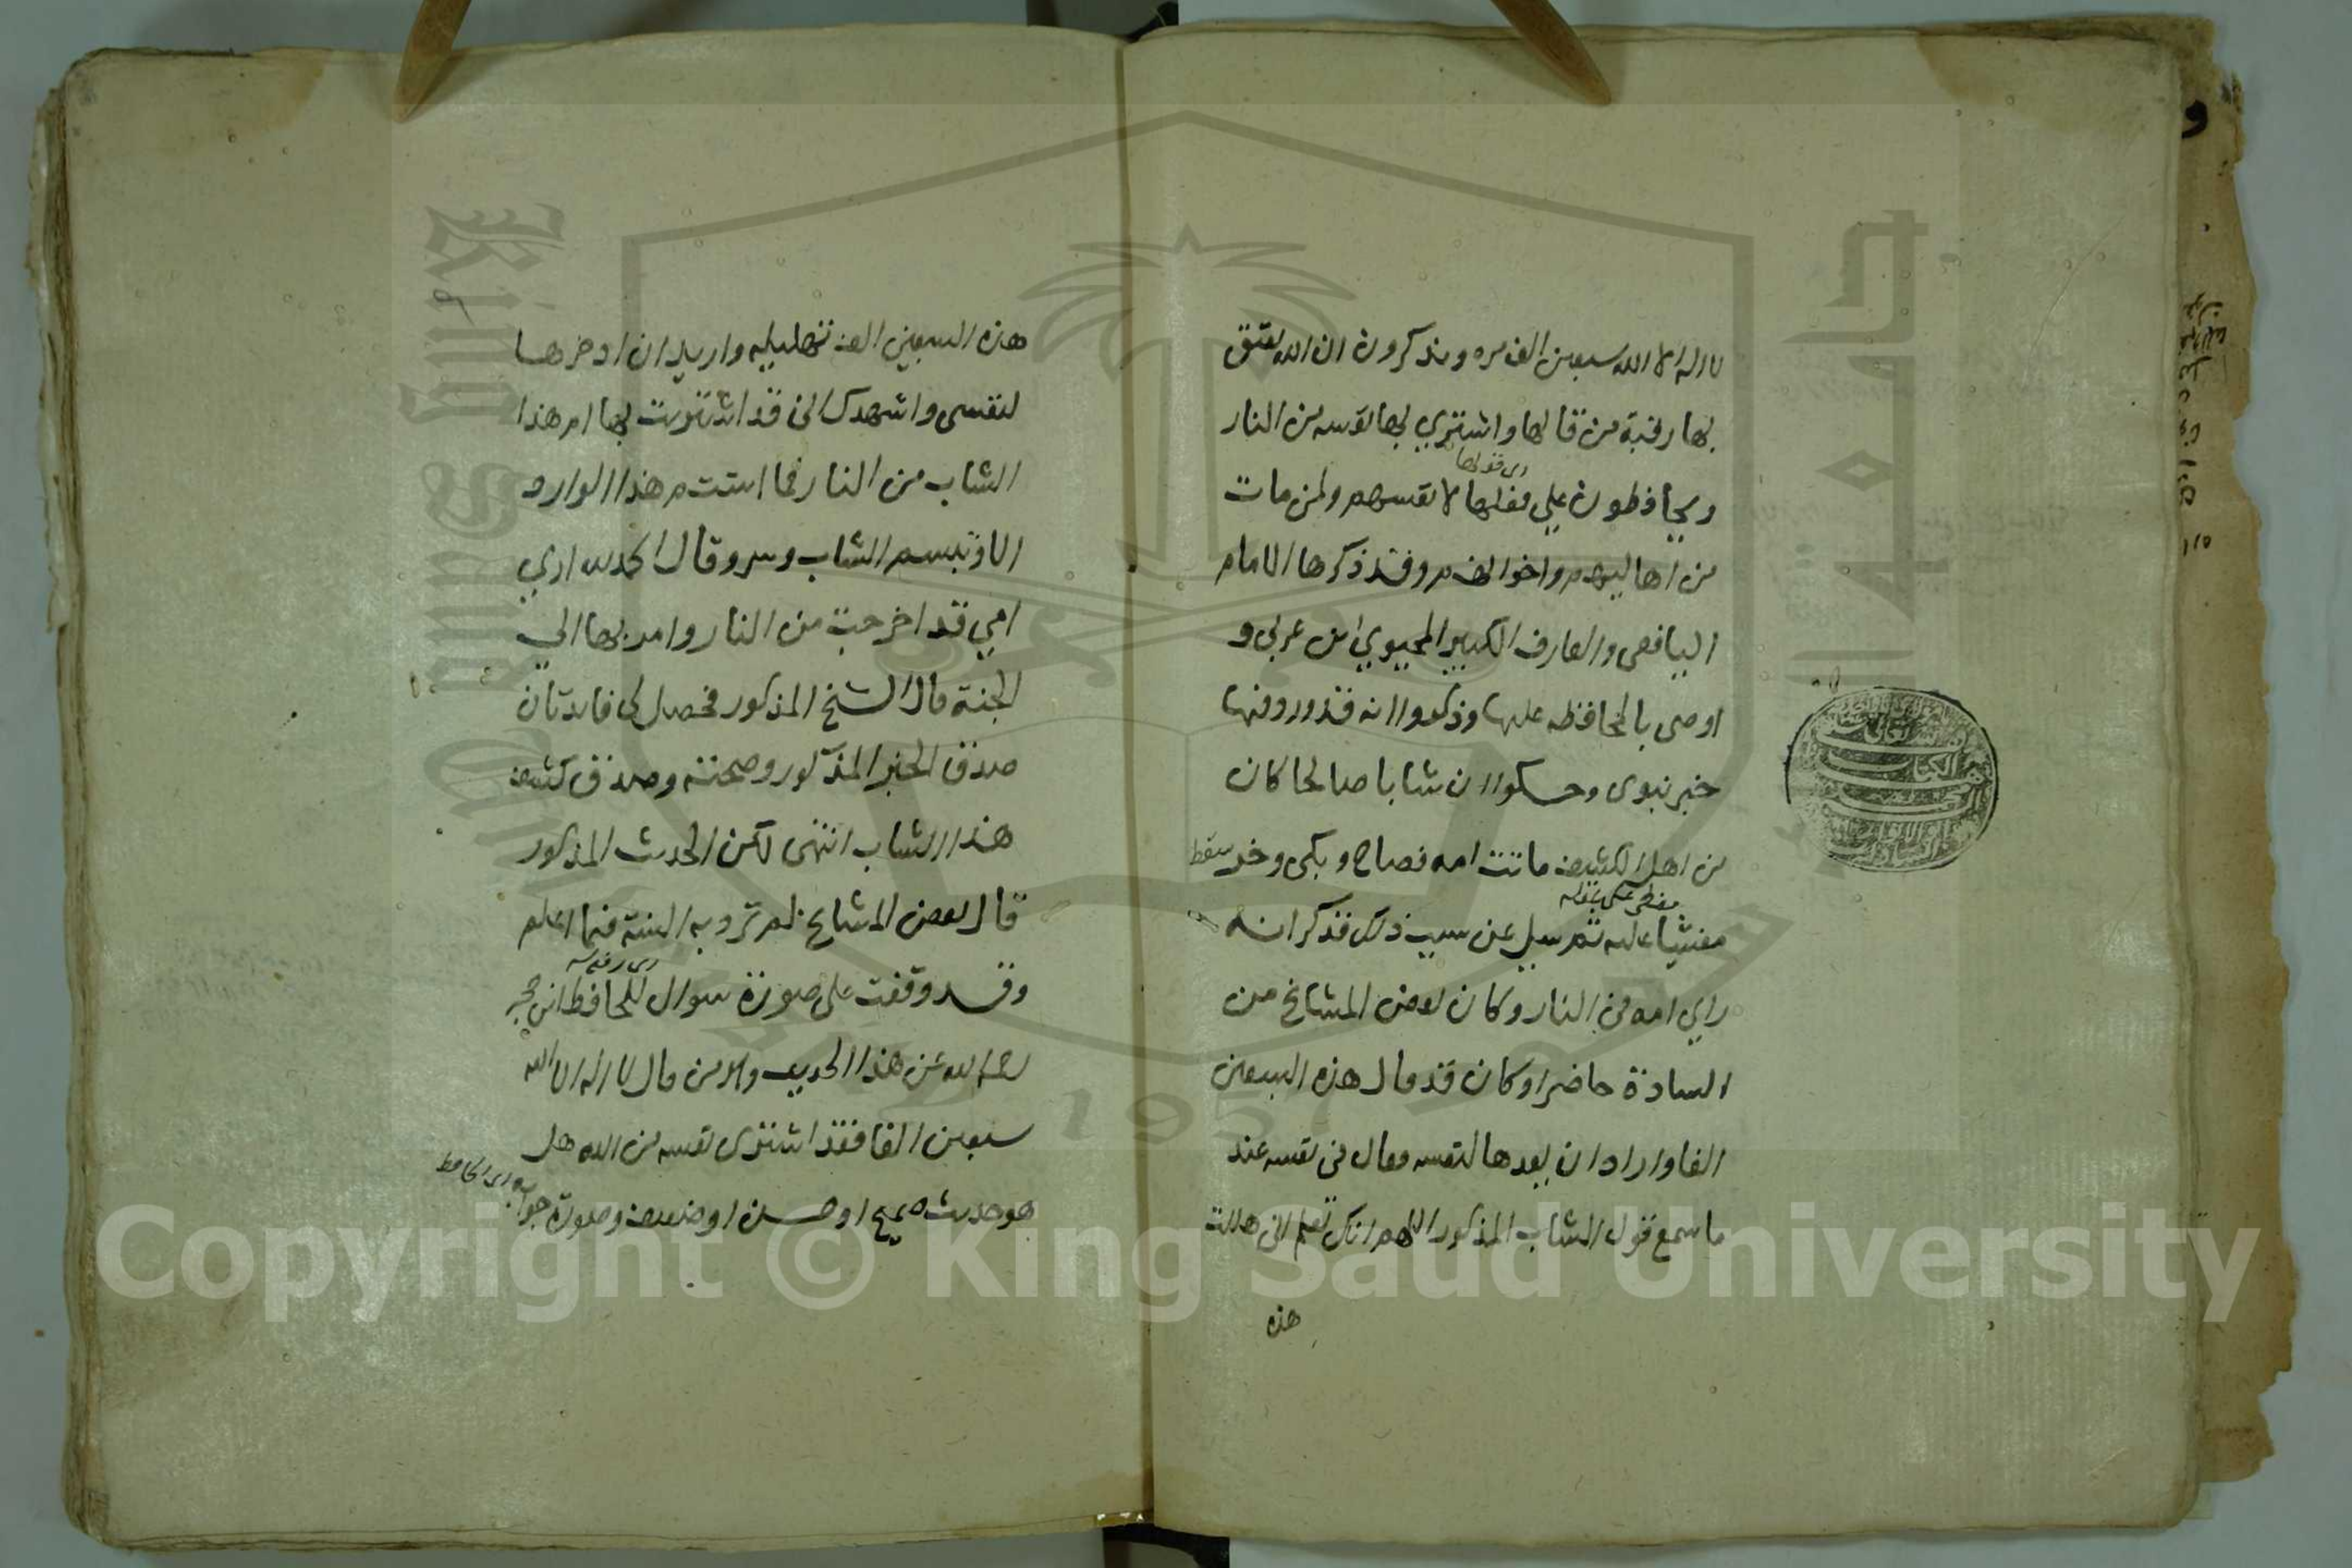 لا اله الا الله سبعين الف مره ويذكرون ان الله يعتق
بها رقبة من قالها واشتري بها نفسه من النار
اى قولها
ويحافظون علي فعلها لانفسهم ولمن مات
من اهاليهم واخوانهم وقد ذكرها الامام
اليافعي والعارف الكبير المحيوي ابن عربي و
اوصى بالمحافظه عليها وذكروا انه قد ورد فيها
خبر نبوى وحكوا ان شابا صالحا كان
من اهل الكشف ماتت امه فصاح وبكى وخر سقط
مغطى على عقله
مغشيا عليه ثم سيل عن سبب ذلك فذكر انه
راي امه في النار وكان بعض المشايخ من
السادة حاضرا وكان قد قال هذه السبعين
الفا واراد ان يعدها لنفسه فقال في نفسه عند
ما سمع قول الشاب المذكور اللهم انك تعلم اني هللت
هذه
هذه السبعين الف تهليله واريد ان ادخرها
لنفسي واشهدك اني قد اشتريت بها ام هذا
الشاب من النار فما استتم هذا الوارد
الا وتبسم الشاب وسر وقال الحمد لله اري
امي قد اخرجت من النار وامر بها الي
الجنة قال الشيخ المذكور فحصل لي فايدتان
صدق الخبر المذكور وصحته وصدق كشف
هذا الشاب انتهى لكن الحديث المذكور
قال بعض المشايخ لم ترد به السنة فيما اعلم
وقد وقفت على صورة سوال للحافظ ابن حجر
رحمه الله عن هذا الحديث وهو من قال لا اله الا الله
سبعين الفا فقد اشترى نفسه من الله هل
هو حديث صحيح او حسن او ضعيف وصورة جوابه
اى الحافظ
Copyright © King Saud University
King Saud University
1957